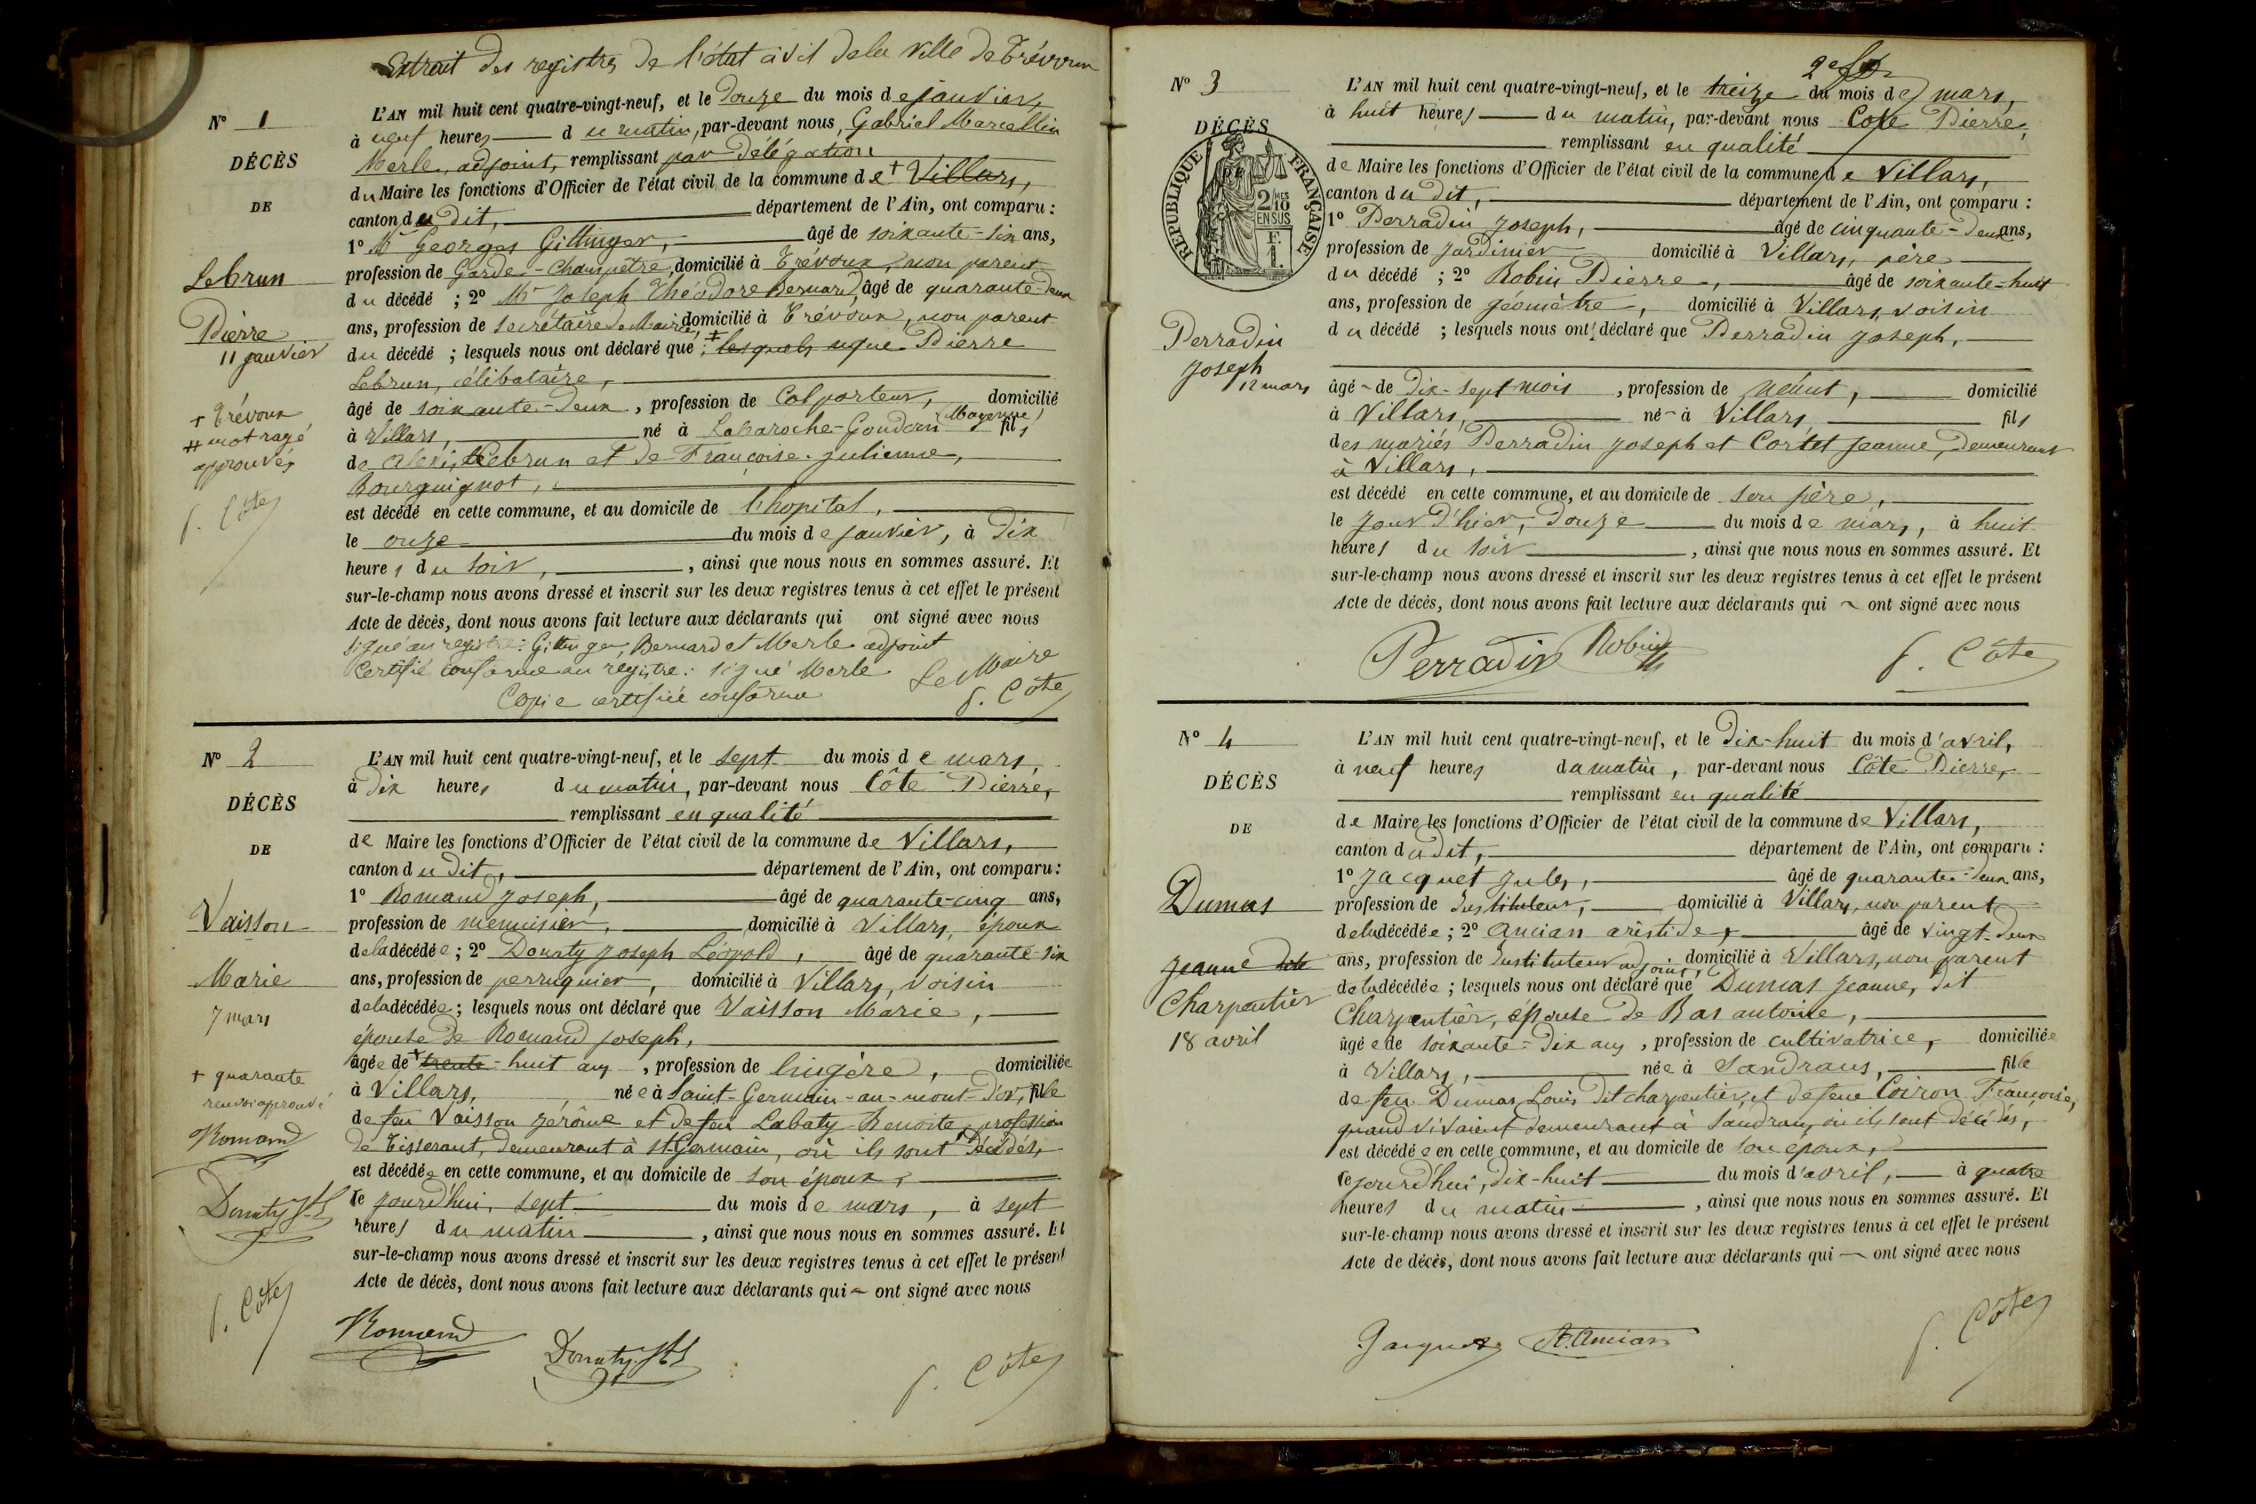 Extrait des registres de l'état civil de la Ville de Trévoux
N° 1
DÉCÈS
DE
Lebrun
Pierre
11 janvier
+ Trévoux
# mot rayé
approuvés
P. Côte
L'AN mil huit cent quatre-vingt-neuf, et le douze du mois de janvier,
à neuf heures du matin, par-devant nous, Gabriel Marcellin
Merle, adjoint, remplissant par délégation
du Maire les fonctions d'Officier de l'état civil de la commune de + Villars,
canton du dit, département de l'Ain, ont comparu :
1° Mr Georges Gittinger, âgé de soixante-six ans,
profession de Garde-Champêtre, domicilié à Trévoux, non parent
du décédé ; 2° Mr Joseph Théodore Bernard, âgé de quarante-deux
ans, profession de secrétaire de Mairie, domicilié à Trévoux, non parent
du décédé ; lesquels nous ont déclaré que # lesquels nque Pierre
Lebrun, célibataire,
âgé de soixante-deux, profession de Colporteur, domicilié
à Villars, né à Labaroche-Goudoin (Mayenne) fils
de Alexis Lebrun et de Françoise-Julienne,
Bourguignot,
est décédé en cette commune, et au domicile de l'hopital,
le onze du mois de janvier, à dix
heures du soir, ainsi que nous nous en sommes assuré. Et
sur-le-champ nous avons dressé et inscrit sur les deux registres tenus à cet effet le présent
Acte de décès, dont nous avons fait lecture aux déclarants qui ont signé avec nous
Signé au registre : Gittinger, Bernard et Merle adjoint
Certifié conforme au registre : signé Merle
Copie certifiée conforme
Le Maire
P. Côte
N° 2
DÉCÈS
DE
Vaisson
Marie
7 mars
+ quarante
renvoi approuvé
Romand
Donaty
P. Côte
L'AN mil huit cent quatre-vingt-neuf, et le sept du mois de mars,
à dix heures du matin, par-devant nous Côte Pierre,
remplissant en qualité
de Maire les fonctions d'Officier de l'état civil de la commune de Villars,
canton du dit, département de l'Ain, ont comparu :
1° Romand Joseph, âgé de quarante-cinq ans,
profession de menuisier, domicilié à Villars, époux
de la décédée ; 2° Donaty Joseph Léopold, âgé de quarante-six
ans, profession de perruquier, domicilié à Villars, voisin
de la décédée ; lesquels nous ont déclaré que Vaisson Marie,
épouse de Romand Joseph,
âgée de + trente-huit ans, profession de lingère, domiciliée
à Villars, née à Saint-Germain-au-mont-d'or, fille
de feu Vaisson Jérôme et de feu Labaty Benoite, profession
de Tisserant, demeurant à St Germain, où ils sont décédés,
est décédée en cette commune, et au domicile de son époux,
ce jourd'hui, sept du mois de mars, à sept
heures du matin, ainsi que nous nous en sommes assuré. Et
sur-le-champ nous avons dressé et inscrit sur les deux registres tenus à cet effet le présent
Acte de décès, dont nous avons fait lecture aux déclarants qui ont signé avec nous
Romand
Donaty
P. Côte
N° 3
DÉCÈS
RÉPUBLIQUE FRANÇAISE
2/10
EN SUS
F.
1.
Perradin
Joseph
12 mars
L'AN mil huit cent quatre-vingt-neuf, et le treize du mois de mars,
à huit heures du matin, par-devant nous Cote Pierre,
remplissant en qualité
de Maire les fonctions d'Officier de l'état civil de la commune de Villars,
canton du dit, département de l'Ain, ont comparu :
1° Perradin Joseph, âgé de cinquante-deux ans,
profession de Jardinier domicilié à Villars, père
du décédé ; 2° Robin Pierre, âgé de soixante-huit
ans, profession de géomètre, domicilié à Villars, voisin
du décédé ; lesquels nous ont déclaré que Perradin Joseph,
âgé de dix-sept mois, profession de néant, domicilié
à Villars, né à Villars, fils
des mariés Perradin Joseph et Cortet Jeanne, demeurant
à Villars,
est décédé en cette commune, et au domicile de son père,
le jour d'hier, douze du mois de mars, à huit
heures du soir, ainsi que nous nous en sommes assuré. Et
sur-le-champ nous avons dressé et inscrit sur les deux registres tenus à cet effet le présent
Acte de décès, dont nous avons fait lecture aux déclarants qui ont signé avec nous
Perradin Robin P. Côte
N° 4
DÉCÈS
DE
Dumas
Jeanne dite
Charpentier
18 avril
L'AN mil huit cent quatre-vingt-neuf, et le dix-huit du mois d'avril,
à neuf heures du matin, par-devant nous Côte Pierre,
remplissant en qualité
de Maire les fonctions d'Officier de l'état civil de la commune de Villars,
canton du dit, département de l'Ain, ont comparu :
1° Jacquet Jules, âgé de quarante-deux ans,
profession de Instituteur, domicilié à Villars, non parent
de la décédée ; 2° Ancian Aristide, âgé de vingt-deux
ans, profession de Instituteur adjoint, domicilié à Villars, non parent
de la décédée ; lesquels nous ont déclaré que Dumas Jeanne, dit
Charpentier, épouse de Bas antoine,
âgée de soixante-dix ans, profession de cultivatrice, domiciliée
à Villars, née à Sandrans, fille
de feu Dumas Louis dit charpentier, et de feue Coiron Françoise,
quand vivaient demeurant à Sandrans, où ils sont décédés,
est décédée en cette commune, et au domicile de son époux,
ce jourd'hui, dix-huit du mois d'avril, à quatre
heures du matin, ainsi que nous nous en sommes assuré. Et
sur-le-champ nous avons dressé et inscrit sur les deux registres tenus à cet effet le présent
Acte de décès, dont nous avons fait lecture aux déclarants qui ont signé avec nous
Jacquet A. Ancian P. Côte